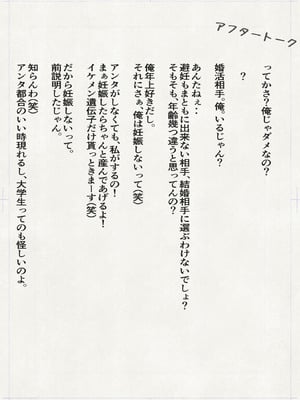 アフタートーク
ってかさ？俺じゃダメなの？
？
婚活相手、俺、いるじゃん？
あんたねぇ・・
避妊もまともに出来ない相手、結婚相手に選ぶわけないでしょ？
そもそも、年齢幾つ違うと思ってんの？
俺年上好きだし。
それにさぁ、俺は妊娠しないって(笑)
アンタがしなくても、私がするの！
まぁ妊娠したらちゃんと産んであげるよ！
イケメン遺伝子だけ貰っときまーす(笑)
だから妊娠しないって。
前説明したじゃん。
知らんわ(笑)
アンタ都合のいい時現れるし、大学生ってのも怪しいのよ。